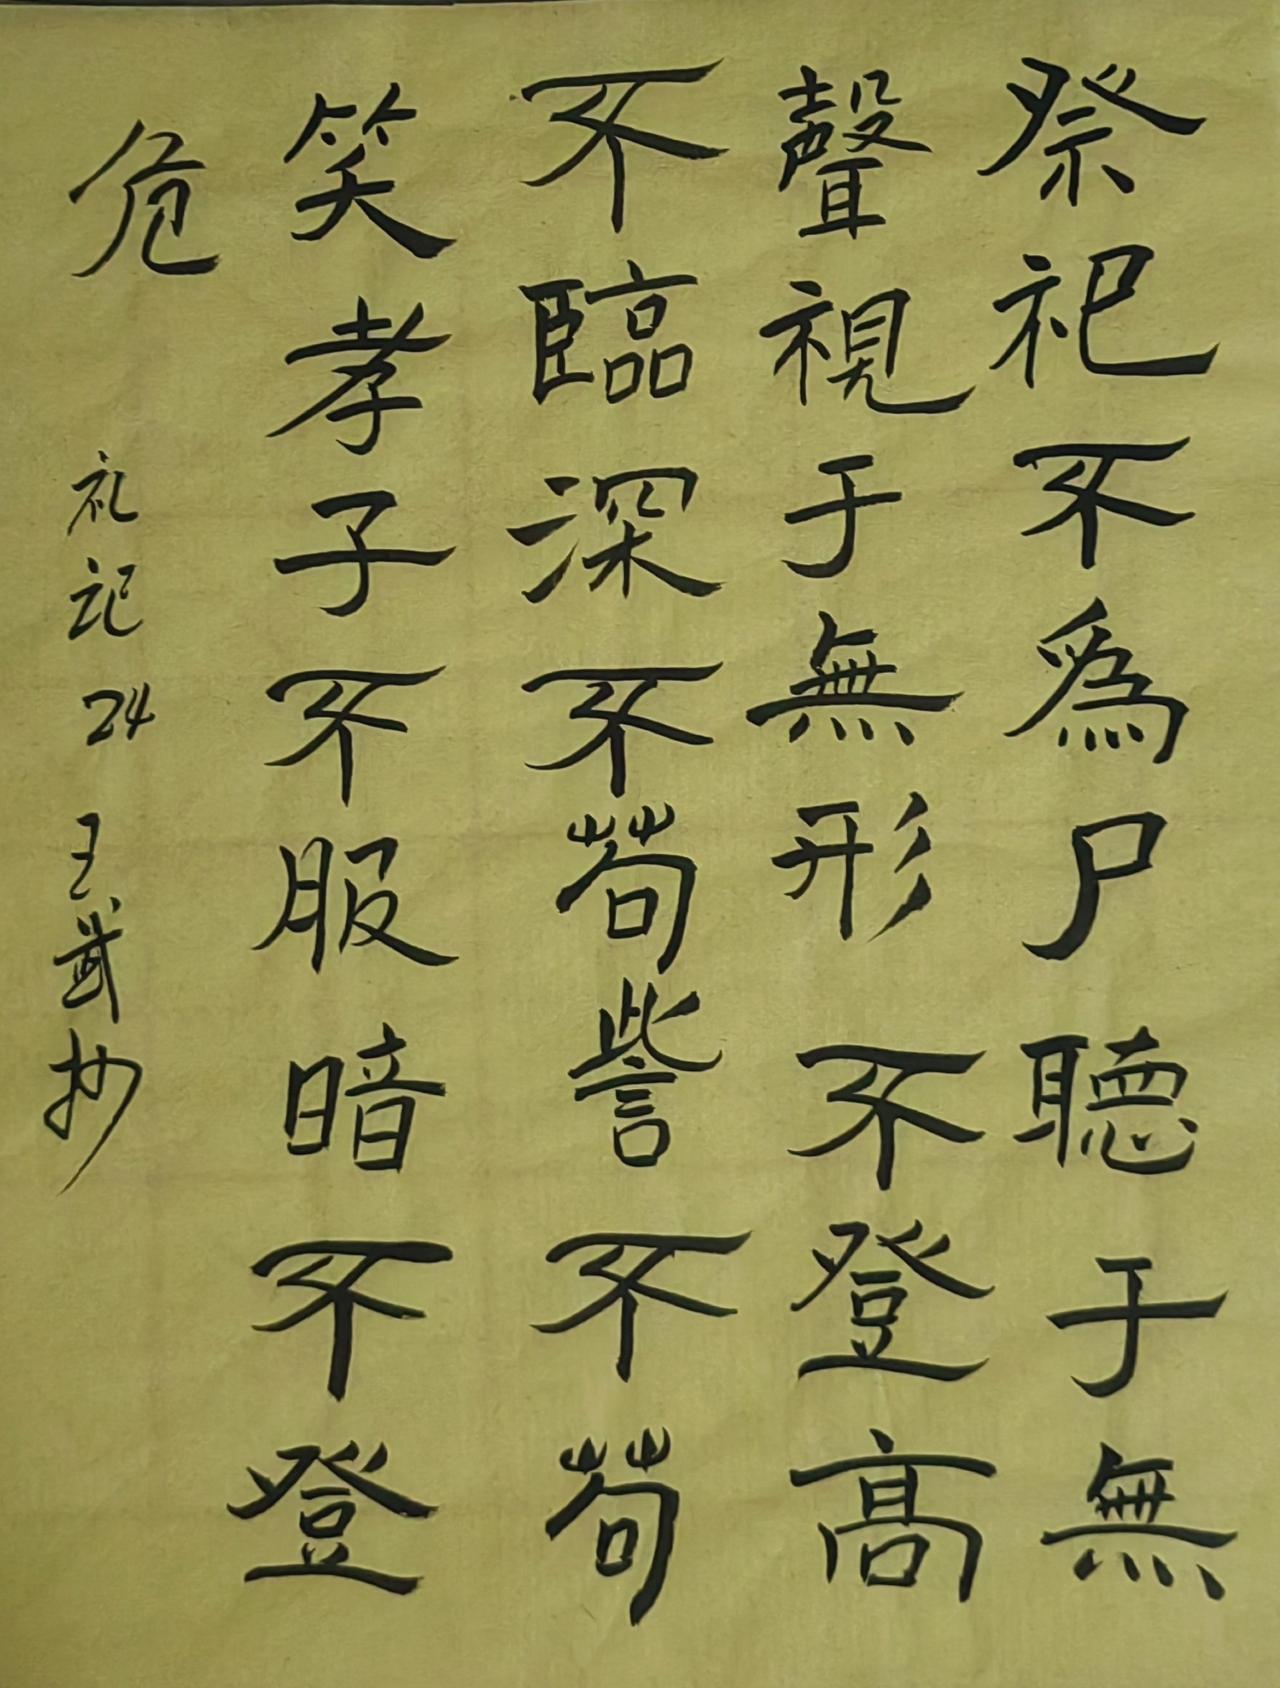 祭祀不爲尸聽于無
聲視于無形不登高
不臨深不苟訾不苟
笑孝子不服暗不登
危
礼记24 王武抄